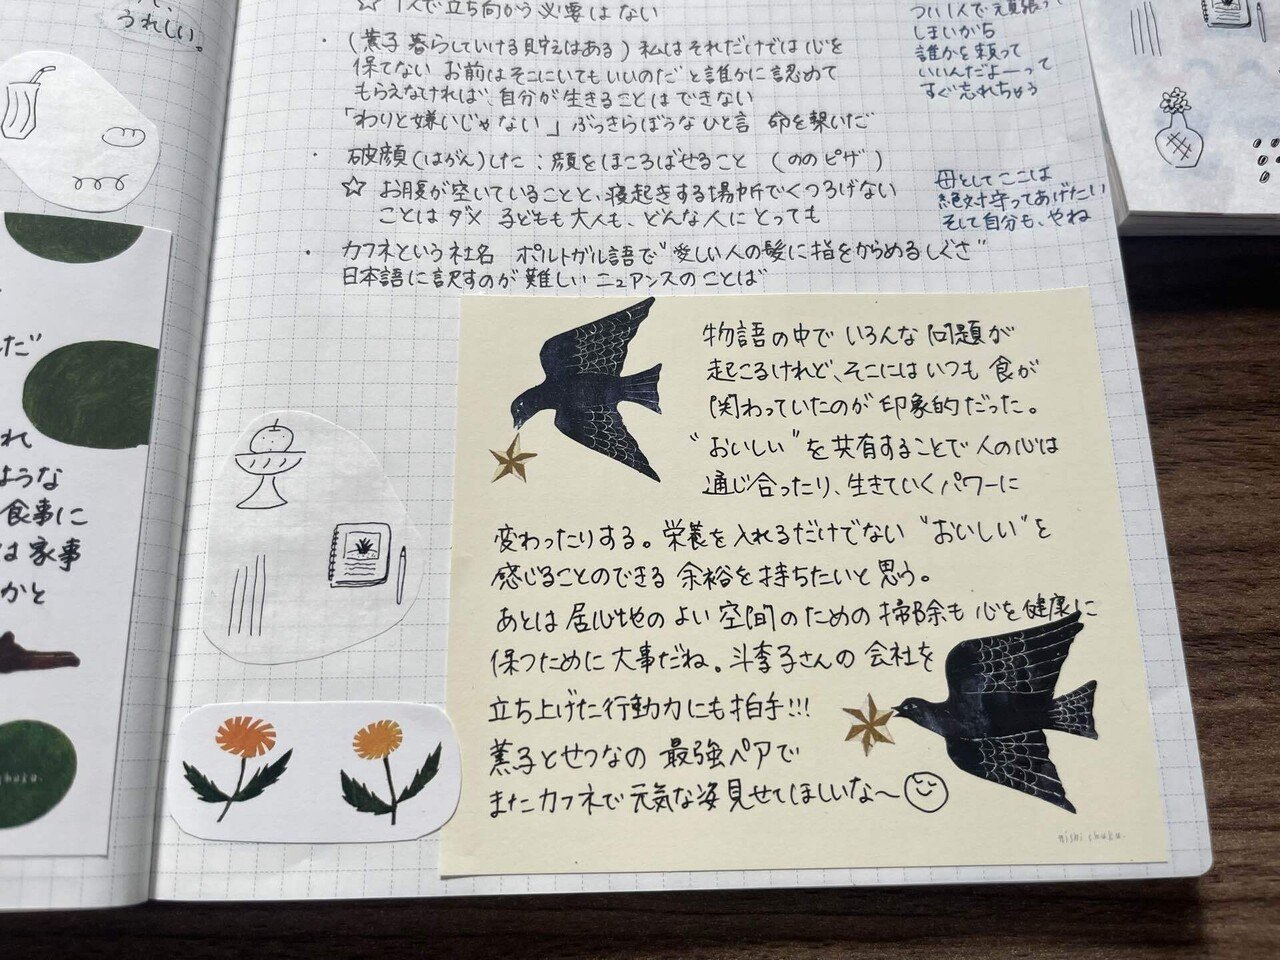 うれしい。
☆ 1人で立ち向かう必要はない
・(薫子 暮らしていける見字えはある) 私はそれだけでは心を
保てない お前はそこにいてもいいのだと誰かに認めて
もらえなければ、自分が生きることはできない
「わりと嫌いじゃない」ぶっきらぼうなひと言 命を繋いだ
・破顔(はがん)した:顔をほころばせること (ののピザ)
☆ お腹が空いていることと、寝起きする場所でくつろげない
ことはダメ 子どもも大人も、どんな人にとっても
・カフネという社名 ポルトガル語で"愛しい人の髪に指をからめるしぐさ"
日本語に訳すのが難しいニュアンスのことば
つい1人で頑張って
しまいがち
誰かを頼って
いいんだよーって
すぐ忘れちゃう
母としてここは
絶対守ってあげたい
そして自分も、やね
だ"
れ
ような
食事に
は家事
かと
物語の中でいろんな問題が
起こるけれど、そこにはいつも食が
関わっていたのが印象的だった。
"おいしい"を共有することで人の心は
通じ合ったり、生きていくパワーに
変わったりする。栄養を入れるだけでない"おいしい"を
感じることのできる余裕を持ちたいと思う。
あとは居心地のよい空間のための掃除も心を健康に
保つために大事だね。斗季子さんの会社を
立ち上げた行動力にも拍手!!!
薫子とせつなの最強ペアで
またカフネで元気な姿見せてほしいな〜
nishi shuku.